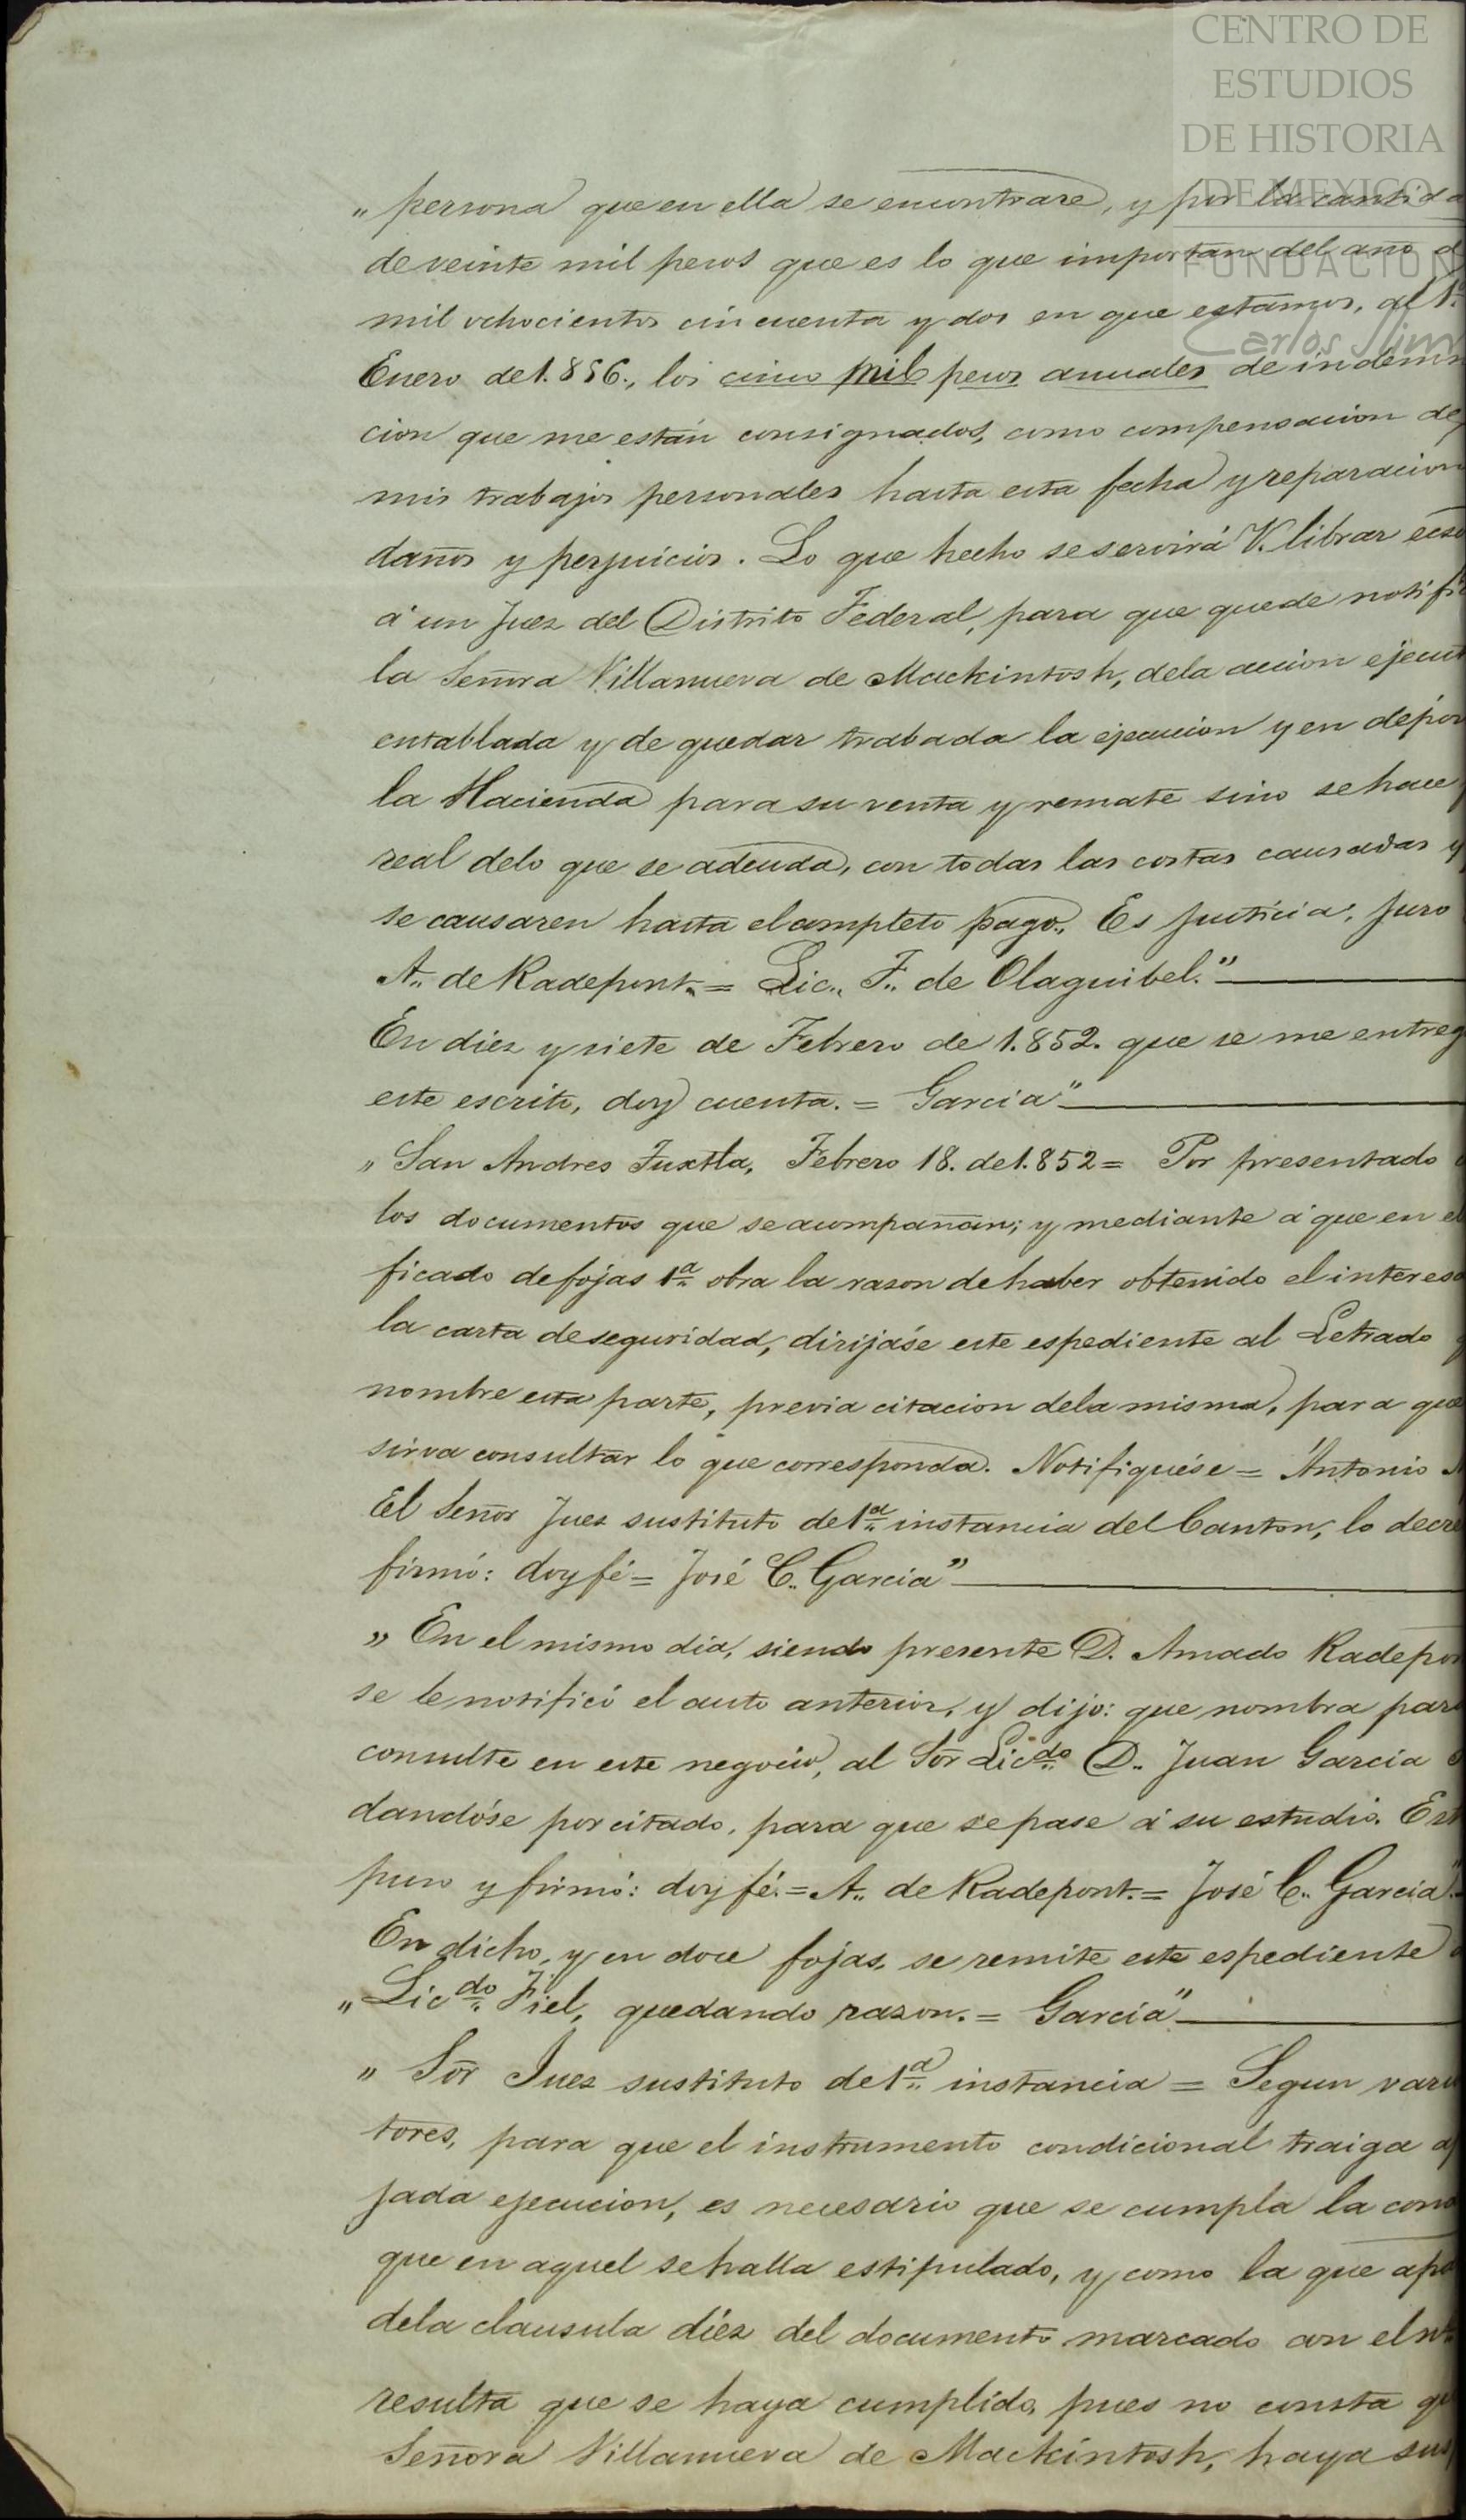 CENTRO DE
ESTUDIOS
DE HISTORIA
DE MEXICO
FUNDACION
Carlos Slim
„ persona que en ella se encontrare, y por la cantida
de veinte mil pesos que es lo que importan del año d
mil ochocientos cincuenta y dos en que estamos, al 1º
Enero de 1.856., los cinco mil pesos anuales de indemn
cion que me están consignados, como compensacion de
mis trabajos personales hasta esta fecha y reparacion
daños y perjuicios. Lo que hecho se servirá V. librar ecso
á un Juez del Distrito Federal, para que quede notific
la Señora Villanueva de Mackintosh, dela accion ejecut
entablada y de quedar trabada la ejecucion y en depos
la Hacienda para su venta y remate sino se hace
real delo que se adeuda, con todas las costas causadas y
se causaren hasta el completo pago. Es justicia, juro
A.. de Radepont.= Lic.. F.. de Olaguibel."
En diez y siete de Febrero de 1.852. que se me entreg
este escrito, doy cuenta. = Garcia"
„ San Andres Tuxtla, Febrero 18. de 1.852 = Por presentado
los documentos que se acompañan; y mediante á que en el
ficado de fojas 1ª obra la razon de haber obtenido el interesa
la carta de seguridad, dirijáse este espediente al Letrado q
nombre esta parte, previa citacion dela misma, para que
sirva consultar lo que corresponda. Notifiquése = Antonio
El Señor Juez sustituto de 1ª instancia del Canton, lo decre
firmó: doy fé = José C.. Garcia"
„ En el mismo dia, siendo presente D. Amado Radepon
se le notificó el auto anterior, y dijo: que nombra para
consulte en este negocio, al Sor Licdo D.. Juan Garcia
dandóse por citado, para que se pase á su estudio. Est
puso y firmó: doy fé.= A.. de Radepont.= José C.. Garcia"
En dicho, y en doce fojas, se remite este espediente
„ Licdo Fiel, quedando razon. = Garcia"
„ Sor Juez sustituto de 1ª instancia = Segun vario
tores, para que el instrumento condicional traiga a
jada ejecucion, es necesario que se cumpla la cond
que en aquel se halla estipulado, y como la que apa
dela clausula diez del documento marcado con el nº
resulta que se haya cumplido, pues no consta qu
Señora Villanueva de Mackintosh, haya sus